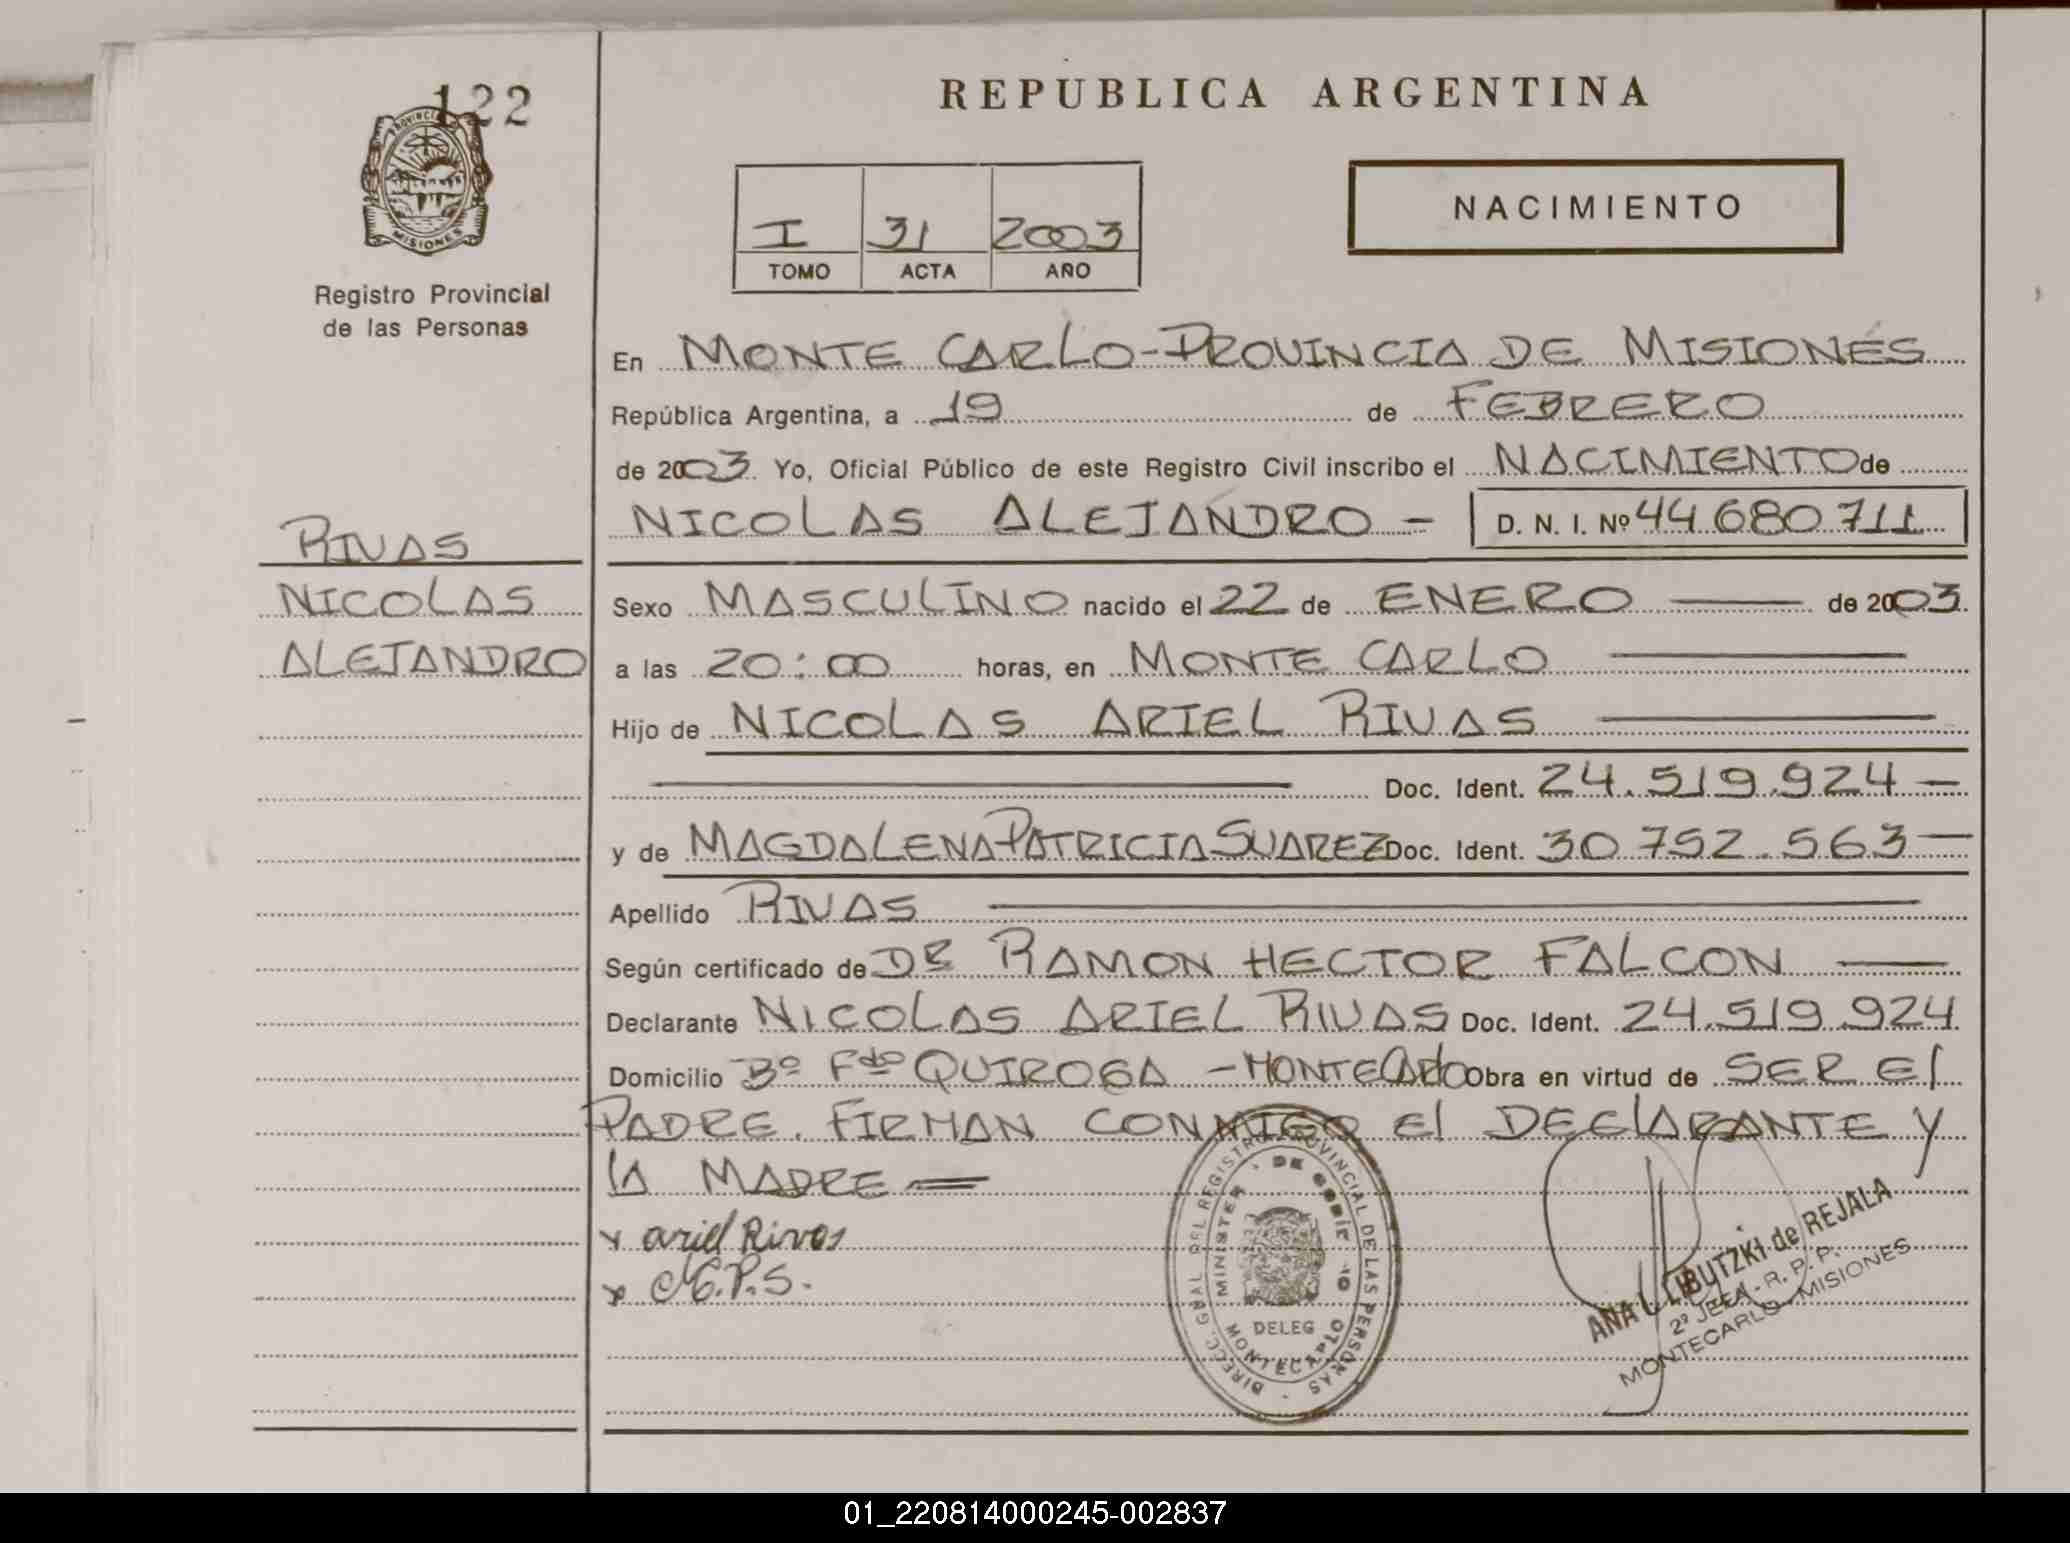 122
PROVINCIA
MISIONES
Registro Provincial
de las Personas
RIVAS
NICOLAS
ALEJANDRO
REPUBLICA ARGENTINA
I 31 2003
TOMO ACTA AÑO
NACIMIENTO
En MONTE CARLO-PROVINCIA DE MISIONES
República Argentina, a 19 de FEBRERO
de 2003. Yo, Oficial Público de este Registro Civil inscribo el NACIMIENTO de
NICOLAS ALEJANDRO - D. N. I. Nº 44 680 711
Sexo MASCULINO nacido el 22 de ENERO de 2003.
a las 20:00 horas, en MONTE CARLO
Hijo de NICOLAS ARIEL RIVAS
Doc. Ident. 24.519.924 -
y de MAGDALENA PATRICIA SUAREZ Doc. Ident. 30.752.563 -
Apellido RIVAS
Según certificado de DR RAMON HECTOR FALCON
Declarante NICOLAS ARIEL RIVAS Doc. Ident. 24.519.924
Domicilio Bº Fdo QUIROGA - MONTECARLO Obra en virtud de SER El
PADRE. FIRMAN CONMIGO El DEClARANTE Y
lA MADRE =
x ariel Rivas
x
DIRECC. GRAL DEL REGISTRO PROVINCIAL DE LAS PERSONAS
DELEG
ANA L. LIBUTZKI de REJALA
2ª JEFA - R. P. P.
MONTECARLO - MISIONES
01_220814000245-002837